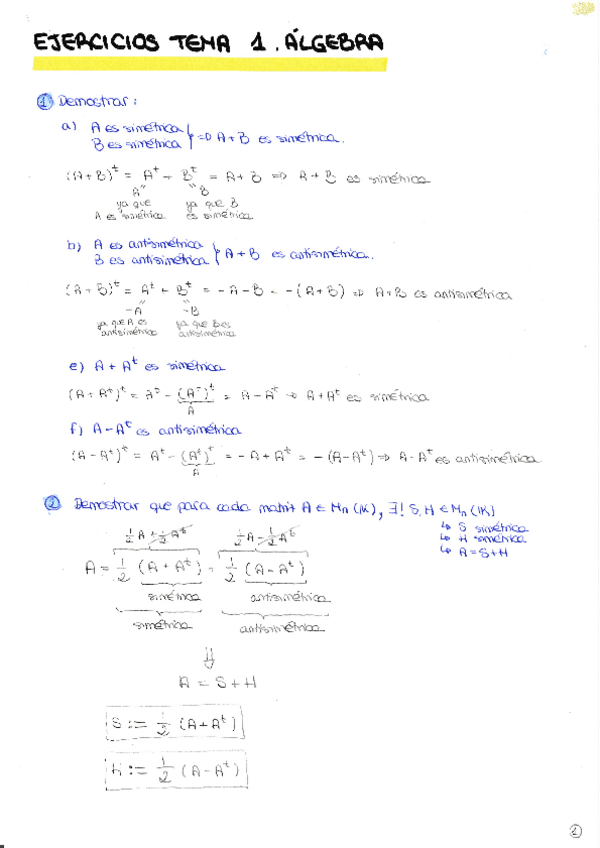 EJERCICIOS TEMA 1. ÁLGEBRA
① Demostrar:
a) A es simétrica
B es simétrica } => A + B es simétrica.
(A+B)^t = A^t + B^t = A + B => A + B es simétrica
A" "B
ya que ya que B
A es simétrica es simétrica
b) A es antisimétrica
B es antisimétrica } A + B es antisimétrica.
(A + B)^t = A^t + B^t = -A - B = -(A+B) => A+B es antisimétrica
-A -B
ya que A es ya que B es
antisimétrica antisimétrica
e) A + A^t es simétrica
(A + A^t)^t = A^t - (A^t)^t = A - A^t -> A + A^t es simétrica
A
f) A - A^t es antisimétrica
(A - A^t)^t = A^t - (A^t)^t = -A + A^t = -(A-A^t) => A-A^t es antisimétrica
A
② Demostrar que para cada matriz A ∈ Mn(IK), ∃! S,H ∈ Mn(IK)
↳ S simétrica
↳ H simétrica
↳ A = S + H
½A + ½A^t ½A - ½A^t
A = ½ (A + A^t) - ½ (A - A^t)
simétrica antisimétrica
simétrica antisimétrica
⇓
A = S + H
S := ½ (A + A^t)
H := ½ (A - A^t)